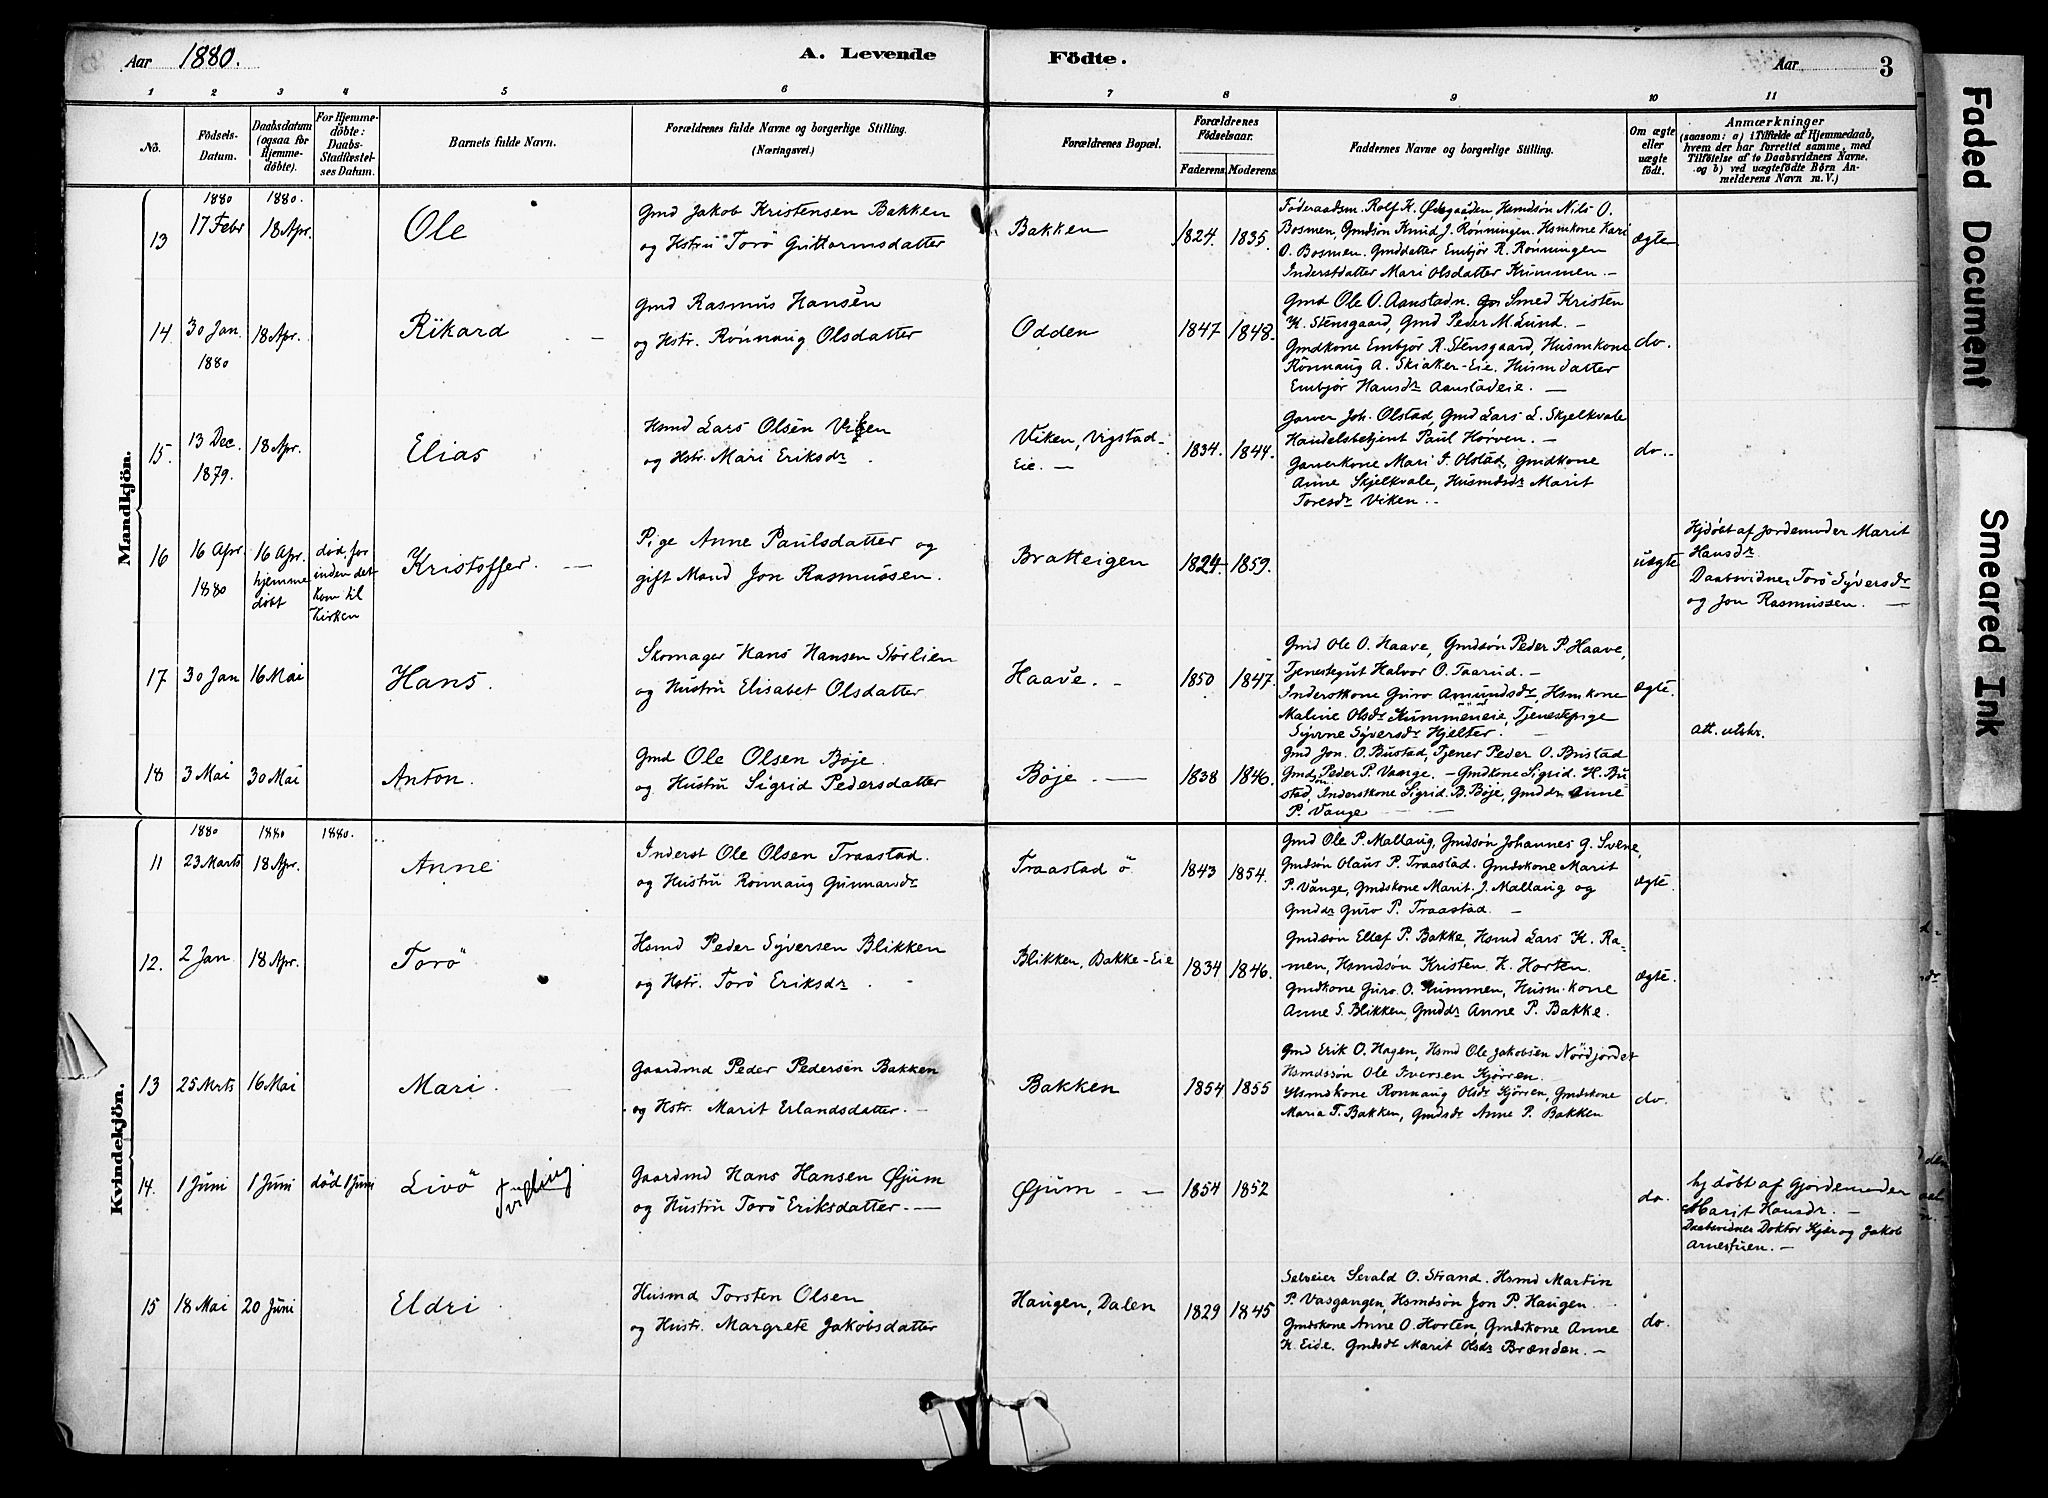 Aar 1880. A. Levende Födte. Aar 3
1 2 3 4 5 6 7 8 9 10 11
No.
Födsels-Datum.
Daabsdatum (ogsaa for Hjemme-döbte).
For Hjemme-döbte: Daabs-Stadfæstel-ses Datum.
Barnets fulde Navn.
Forældrenes fulde Navne og borgerlige Stilling.
(Næringsvei.)
Forældrenes Bopæl.
Forældrenes Födselsaar.
Faderens. Moderens.
Faddernes Navne og borgerlige Stilling.
Om ægte eller uægte födt.
Anmærkninger
(saasom: a) i Tilfælde af Hjemmedaab,
hvem der har forrettet samme, med
Tilföielse af to Daabsvidners Navne.
og b) ved uægtefödte Börn An-
melderens Navn m. V.)
Mandkjön.
1880 1880.
13 17 Febr 18 Apr. Ole
Gmd Jakob Kristensen Bakken
og Hstru Torø Guttormsdatter
Bakken 1824. 1835.
Føderaadsm. Rolf K. Ødegaarden, Hsmdsøn Nils O.
Bosmen, Gmdsøn Knud J. Rønningen. Hsmkone Kari
O. Bosmen. Gmddatter Embjør R. Rønningen
Inderstdatter Mari Olsdatter Kummen. —
ægte
14 30 Jan. 1880 18 Apr. Rikard
Gmd Rasmus Hansen
og Hstr. Rønnaug Olsdatter
Odden 1847 1848.
Gmd Ole O. Aanstadn. Smed Kristen
K. Stensgaard, Gmd Peder M. Lund. —
Gmdkone Embjør R. Stensgaard, Husmkone
Rønnaug A. Skiaker-Eie. Husmdatter
Embjør Hansdr Aanstadeie. —
do.
15. 13 Dec. 1879. 18 Apr. Elias
Hsmd Lars Olsen Viken
og Hstr. Mari Eriksdr.
Viken, Vigstad-
Eie. —
1834. 1844.
Garver Joh. Olstad, Gmd Lars L. Skjelkvale
Handelsbetjent Paul Hørven. —
Garverkone Mari J. Olstad, Gmdkone
Anne Skjelkvale, Husmdsdr Marit
Toresdr Viken. —
do.
16 16 Apr. 1880 16 Apr. hjemme døbt
død, for inden det kom til Kirken
Kristoffer. —
Pige Anne Paulsdatter og
gift Mand Jon Rasmussen.
Bratteigen 1824. 1859.
uægte
Hjdøbt af Jordemoder Marit
Hansdr
Daabsvidner Torø Syversdr
og Jon Rasmussen. —
17 30 Jan 16 Mai Hans.
Skomager Hans Hansen Storlien
og Hustru Elisabet Olsdatter
Haave. — 1850 1847.
Gmd Ole O. Haave, Gmdsøn Peder P. Haave,
Tjenestegut Halvor O. Taarud. —
Inderstkone Guro Amundsdr, Hsmkone
Maline Olsdr Kummeneie, Tjenestepige
Syvrne Syversdr Hjelter. —
ægte.
att. utskr.
18 3 Mai 30 Mai Anton.
Gmd Ole Olsen Bøje.
og Hustru Sigrid Pedersdatter
Bøje. — 1838 1846.
Gmd Jon. O. Bustad, Tjener Peder O. Bustad
Gmdsøn Peder P. Vange. — Gmdkone Sigrid. H. Bu-
stad, Inderstkone Sigrid. B. Bøje, Gmddr. Anne
P. Vange —
Kvindekjön.
1880 1880 1880.
11 23 Marts 18 Apr. Anne
Inderst Ole Olsen Traastad.
og Hustru Rønnaug Gunnarsdr
Traastad ö 1843 1854.
Gmd Ole P. Mallaug, Gmdsøn Johannes G. Svene,
Gmdsøn Olaus P. Traastad. Gmdskone Marit
P. Vange, Gmdskone Marit. J. Mallaug og
Gmddr Guro P. Traastad. —
ægte.
12. 2 Jan 18 Apr. Torø
Hsmd Peder Syversen Blikken
og Hstr. Torø Eriksdr.
Blikken, Bakke-Eie 1834 1846.
Gmdsøn Ellef P. Bakke, Hsmd Lars K. Ra-
men, Hsmdsøn Kristen K. Horten.
Gmdkone Guro. O. Kummen, Husm. kone
Anne S. Blikken, Gmddr Anne P. Bakke.
ægte.
13 25 Mrts 16 Mai Mari.
Gaardmd Peder Pedersen Bakken
og Hstr. Marit Erlandsdatter. —
Bakken 1854 1855
Gmd Erik O. Hagen, Hsmd Ole Jakobsen Nordjordet
Hsmdssøn Ole Iversen Kjørren.
Hsmdkone Rønnaug Olsdr Kjørren, Gmdskone
Maria T. Bakken, Gmdsdr Anne P. Bakken
do.
14. 1 Juni 1 Juni død 1 Juni Livø Tvilling
Gaardmd Hans Hansen Øjum
og Hustru Torø Eriksdatter. —
Øjum — 1854 1852
do.
hj døbt af Gjordemoder
Marit Hansdr. —
Daabsvidner Doktor Kjær og Jakob
Arnestuen. —
15 18 Mai 20 Juni Eldri
Husmd Torsten Olsen.
og Hustr. Margrete Jakobsdatter
Haugen, Dalen 1829 1845
Selveier Sevald O. Strand. Hsmd Martin
P. Vasgangen, Hsmdsøn Jon P. Haugen
Gmdskone Anne O. Horten, Gmdskone Anne
K. Eide. Gmdsdr Marit Olsdr Brænden. —
do.
Faded Document
Smeared Ink